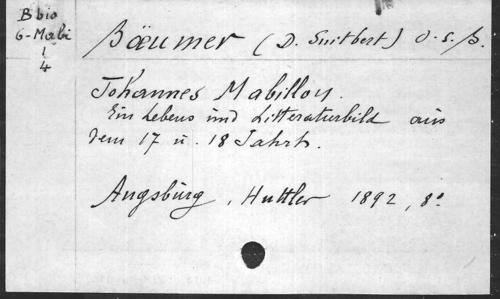 B bio
6-Mabi
1
4
Bäumer (D. Suitbert) O. S. B.
Johannes Mabillon.
Ein Lebens und Litteraturbild aus
dem 17 u. 18 Jahrh.
Augsburg, Huttler 1892, 8°